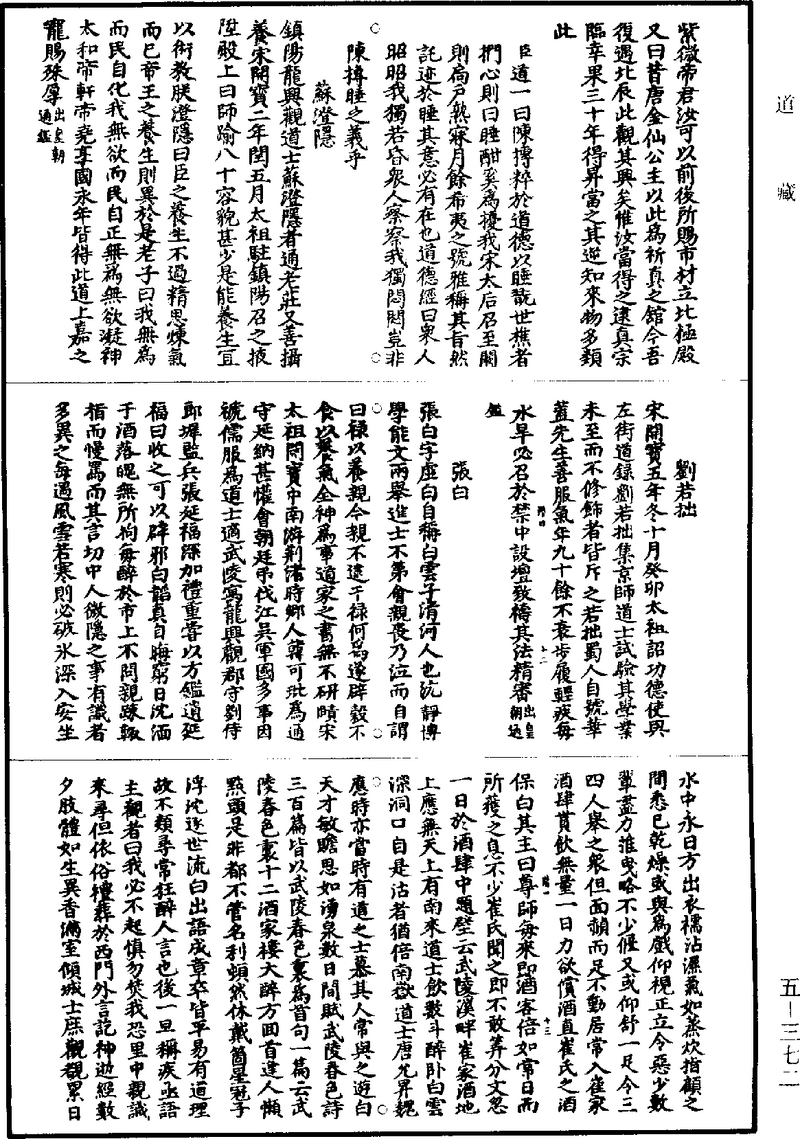 道藏
紫微帝君汝可以前後所賜市材立北極殿
又曰昔唐金仙公主以此為祈真之館今吾
復遇北辰此觀其興矣惟汝當得之逮真宗
臨幸果三十年得昇當之其逆知來物多類
此
臣道一曰陳摶粹於道德以睡翫世樵者
捫心則曰睡酣奚為擾我宋太后召至闕
則扃戶熟寐月餘希夷之號雅稱其旨然
託迹於睡其意必有在也道德經曰眾人
昭昭我獨若昏眾人察察我獨悶悶豈非
陳摶睡之義乎
蘇澄隱
鎮陽龍興觀道士蘇澄隱者通老莊又善攝
養宋開寶二年閏五月太祖駐鎮陽召之掖
陞殿上曰師踰八十容貌甚少是能養生宜
以術教朕澄隱曰臣之養生不過精思煉氣
而已帝王之養生則異於是老子曰我無為
而民自化我無欲而民自正無為無欲凝神
太和帝軒帝堯享國永年皆得此道上嘉之
寵賜殊厚出皇朝通鑑
劉若拙
宋開寶五年冬十月癸卯太祖詔功德使與
左街道錄劉若拙集京師道士試驗其學業
未至而不修飾者皆斥之若拙蜀人自號華
蓋先生善服氣年九十餘不衰步履輕疾每
水旱必召於禁中設壇致禱其法精審出皇朝通
鑑
張白
張白字虛白自稱白雲子清河人也沈靜博
學能文兩舉進士不第會親喪乃泣而自謂
曰祿以養親今親不逮干祿何為遂辟穀不
食以養氣全神為事道家之書無不研賾宋
太祖開寶中南游荊渚時鄉人韓可玭為通
守延納甚懽會朝廷弔伐江吳軍國多事因
褫儒服為道士適武陵寓龍興觀郡守劉侍
郎墀監兵張延福深加禮重嘗以方鑑遺延
福曰收之可以辟邪白韜真自晦窮日沈湎
于酒落魄無所拘每醉於市上不問親踈輙
指而慢罵而其言切中人微隱之事有識者
多異之每遇風雪若寒則必破氷深入安坐
水中永日方出衣襦沾濕氣如蒸炊指顧之
間悉已乾燥或與為戲仰視正立令惡少數
輩盡力推曳略不少偃又或仰舒一足令三
四人舉之眾但面赬而足不動居常入崔家
酒肆貰飲無量一日力欲償酒直崔氏之酒
保白其主曰尊師每來即酒客倍如常日而
所獲之息不少崔氏聞之即不敢筭分文忽
一日於酒肆中題壁云武陵溪畔崔家酒地
上應無天上有南來道士飲數斗醉卧白雲
深洞口自是沽者猶倍南嶽道士唐允昇魏
應時亦當時有道之士慕其人常與之遊白
天才敏贍思如湧泉數日間賦武陵春色詩
三百篇皆以武陵春色裏為首句一篇云武
陵春色裏十二酒家樓大醉方回首逢人懶
點頭是非都不管名利頓然休戴箇星冠子
浮沈逐世流白出語成章卒皆平易有道理
故不類尋常狂醉人言也後一旦稱疾亟語
主觀者曰我必不起慎勿焚我恐里中親識
來尋但依俗禮葬於西門外言訖神逝經數
夕肢體如生異香滿室傾城士庶觀覩累日
五－三七二